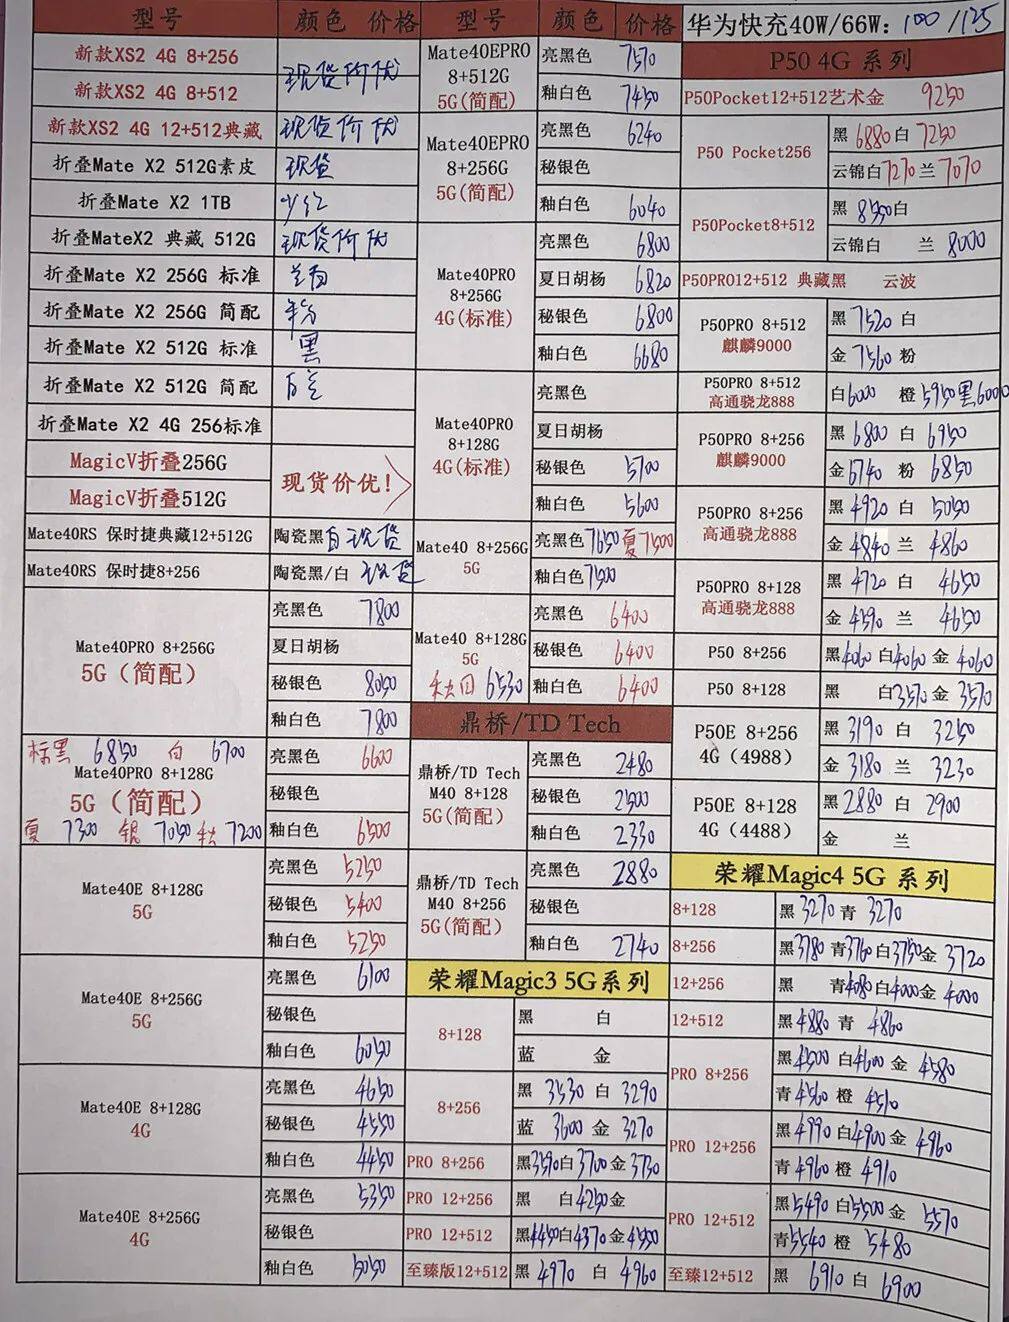 型号 颜色 价格
新款XS2 4G 8+256
新款XS2 4G 8+512
现货价优
新款XS2 4G 12+512典藏 现货价优
折叠Mate X2 512G素皮 现货
折叠Mate X2 1TB
折叠MateX2 典藏 512G 现货价优
折叠Mate X2 256G 标准
折叠Mate X2 256G 简配
折叠Mate X2 512G 标准 黑
折叠Mate X2 512G 简配
折叠Mate X2 4G 256标准
MagicV折叠256G
MagicV折叠512G
现货价优!
Mate40RS 保时捷典藏12+512G 陶瓷黑白现货
Mate40RS 保时捷8+256 陶瓷黑/白 现货
Mate40PRO 8+256G
5G(简配)
亮黑色 7800
夏日胡杨
秘银色 8050
釉白色 7800
标黑 6850 白 6700
Mate40PRO 8+128G
5G(简配)
夏 7300 银 7050 秋 7200
亮黑色 6600
秘银色
釉白色 6500
Mate40E 8+128G
5G
亮黑色 5250
秘银色 5400
釉白色 5250
Mate40E 8+256G
5G
亮黑色 6100
秘银色
釉白色 6050
Mate40E 8+128G
4G
亮黑色 4650
秘银色 4550
釉白色 4450
Mate40E 8+256G
4G
亮黑色 5350
秘银色
釉白色 5050
型号 颜色 价格
Mate40EPRO
8+512G
5G(简配)
亮黑色 7570
釉白色 7450
Mate40EPRO
8+256G
5G(简配)
亮黑色 6240
秘银色
釉白色 6040
Mate40PRO
8+256G
4G(标准)
亮黑色 6800
夏日胡杨 6820
秘银色 6800
釉白色 6680
Mate40PRO
8+128G
4G(标准)
亮黑色
夏日胡杨
秘银色 5700
釉白色 5600
Mate40 8+256G
5G
亮黑色 7650 夏7500
釉白色 7500
Mate40 8+128G
5G
6530
亮黑色 6400
秘银色 6400
釉白色 6400
鼎桥/TD Tech
鼎桥/TD Tech
M40 8+128
5G(简配)
亮黑色 2480
秘银色 2500
釉白色 2330
鼎桥/TD Tech
M40 8+256
5G(简配)
亮黑色 2880
秘银色
釉白色 2740
荣耀Magic3 5G系列
8+128
黑 白
蓝 金
8+256
黑 3530 白 3290
蓝 3600 金 3270
PRO 8+256 黑3590白3700金3730
PRO 12+256 黑 白4250金
PRO 12+512 黑4450白4370金4550
至臻版12+512 黑 4970 白 4960
华为快充40W/66W: 100/125
P50 4G 系列
P50Pocket12+512艺术金 9250
P50 Pocket256
黑 6880 白 7250
云锦白7270 兰 7070
P50Pocket8+512
黑 8550白
云锦白 兰 8000
P50PRO12+512 典藏黑 云波
P50PRO 8+512
麒麟9000
黑 7520 白
金 7560 粉
P50PRO 8+512
高通骁龙888
白6000 橙 5950黑6000
P50PRO 8+256
麒麟9000
黑 6800 白 6950
金6740 粉 6850
P50PRO 8+256
高通骁龙888
黑 4920 白 5050
金 4840 兰 4860
P50PRO 8+128
高通骁龙888
黑 4720 白 4650
金 4590 兰 4650
P50 8+256 黑4060 白4060 金 4060
P50 8+128 黑 白3570金 3570
P50E 8+256
4G(4988)
黑 3190 白 3250
金 3180 兰 3230
P50E 8+128
4G(4488)
黑 2880 白 2900
金 兰
荣耀Magic4 5G 系列
8+128 黑 3270 青 3270
8+256 黑3780 青3760白3750金 3720
12+256 黑 青4080白4000金 4000
12+512 黑 4880 青 4860
PRO 8+256
黑4500 白4600 金 4580
青4560 橙 4510
PRO 12+256
黑4990 白4900 金 4960
青 4960 橙 4910
PRO 12+512
黑5490 白5500 金 5570
青5540 橙 5480
至臻12+512 黑 6910 白 6900